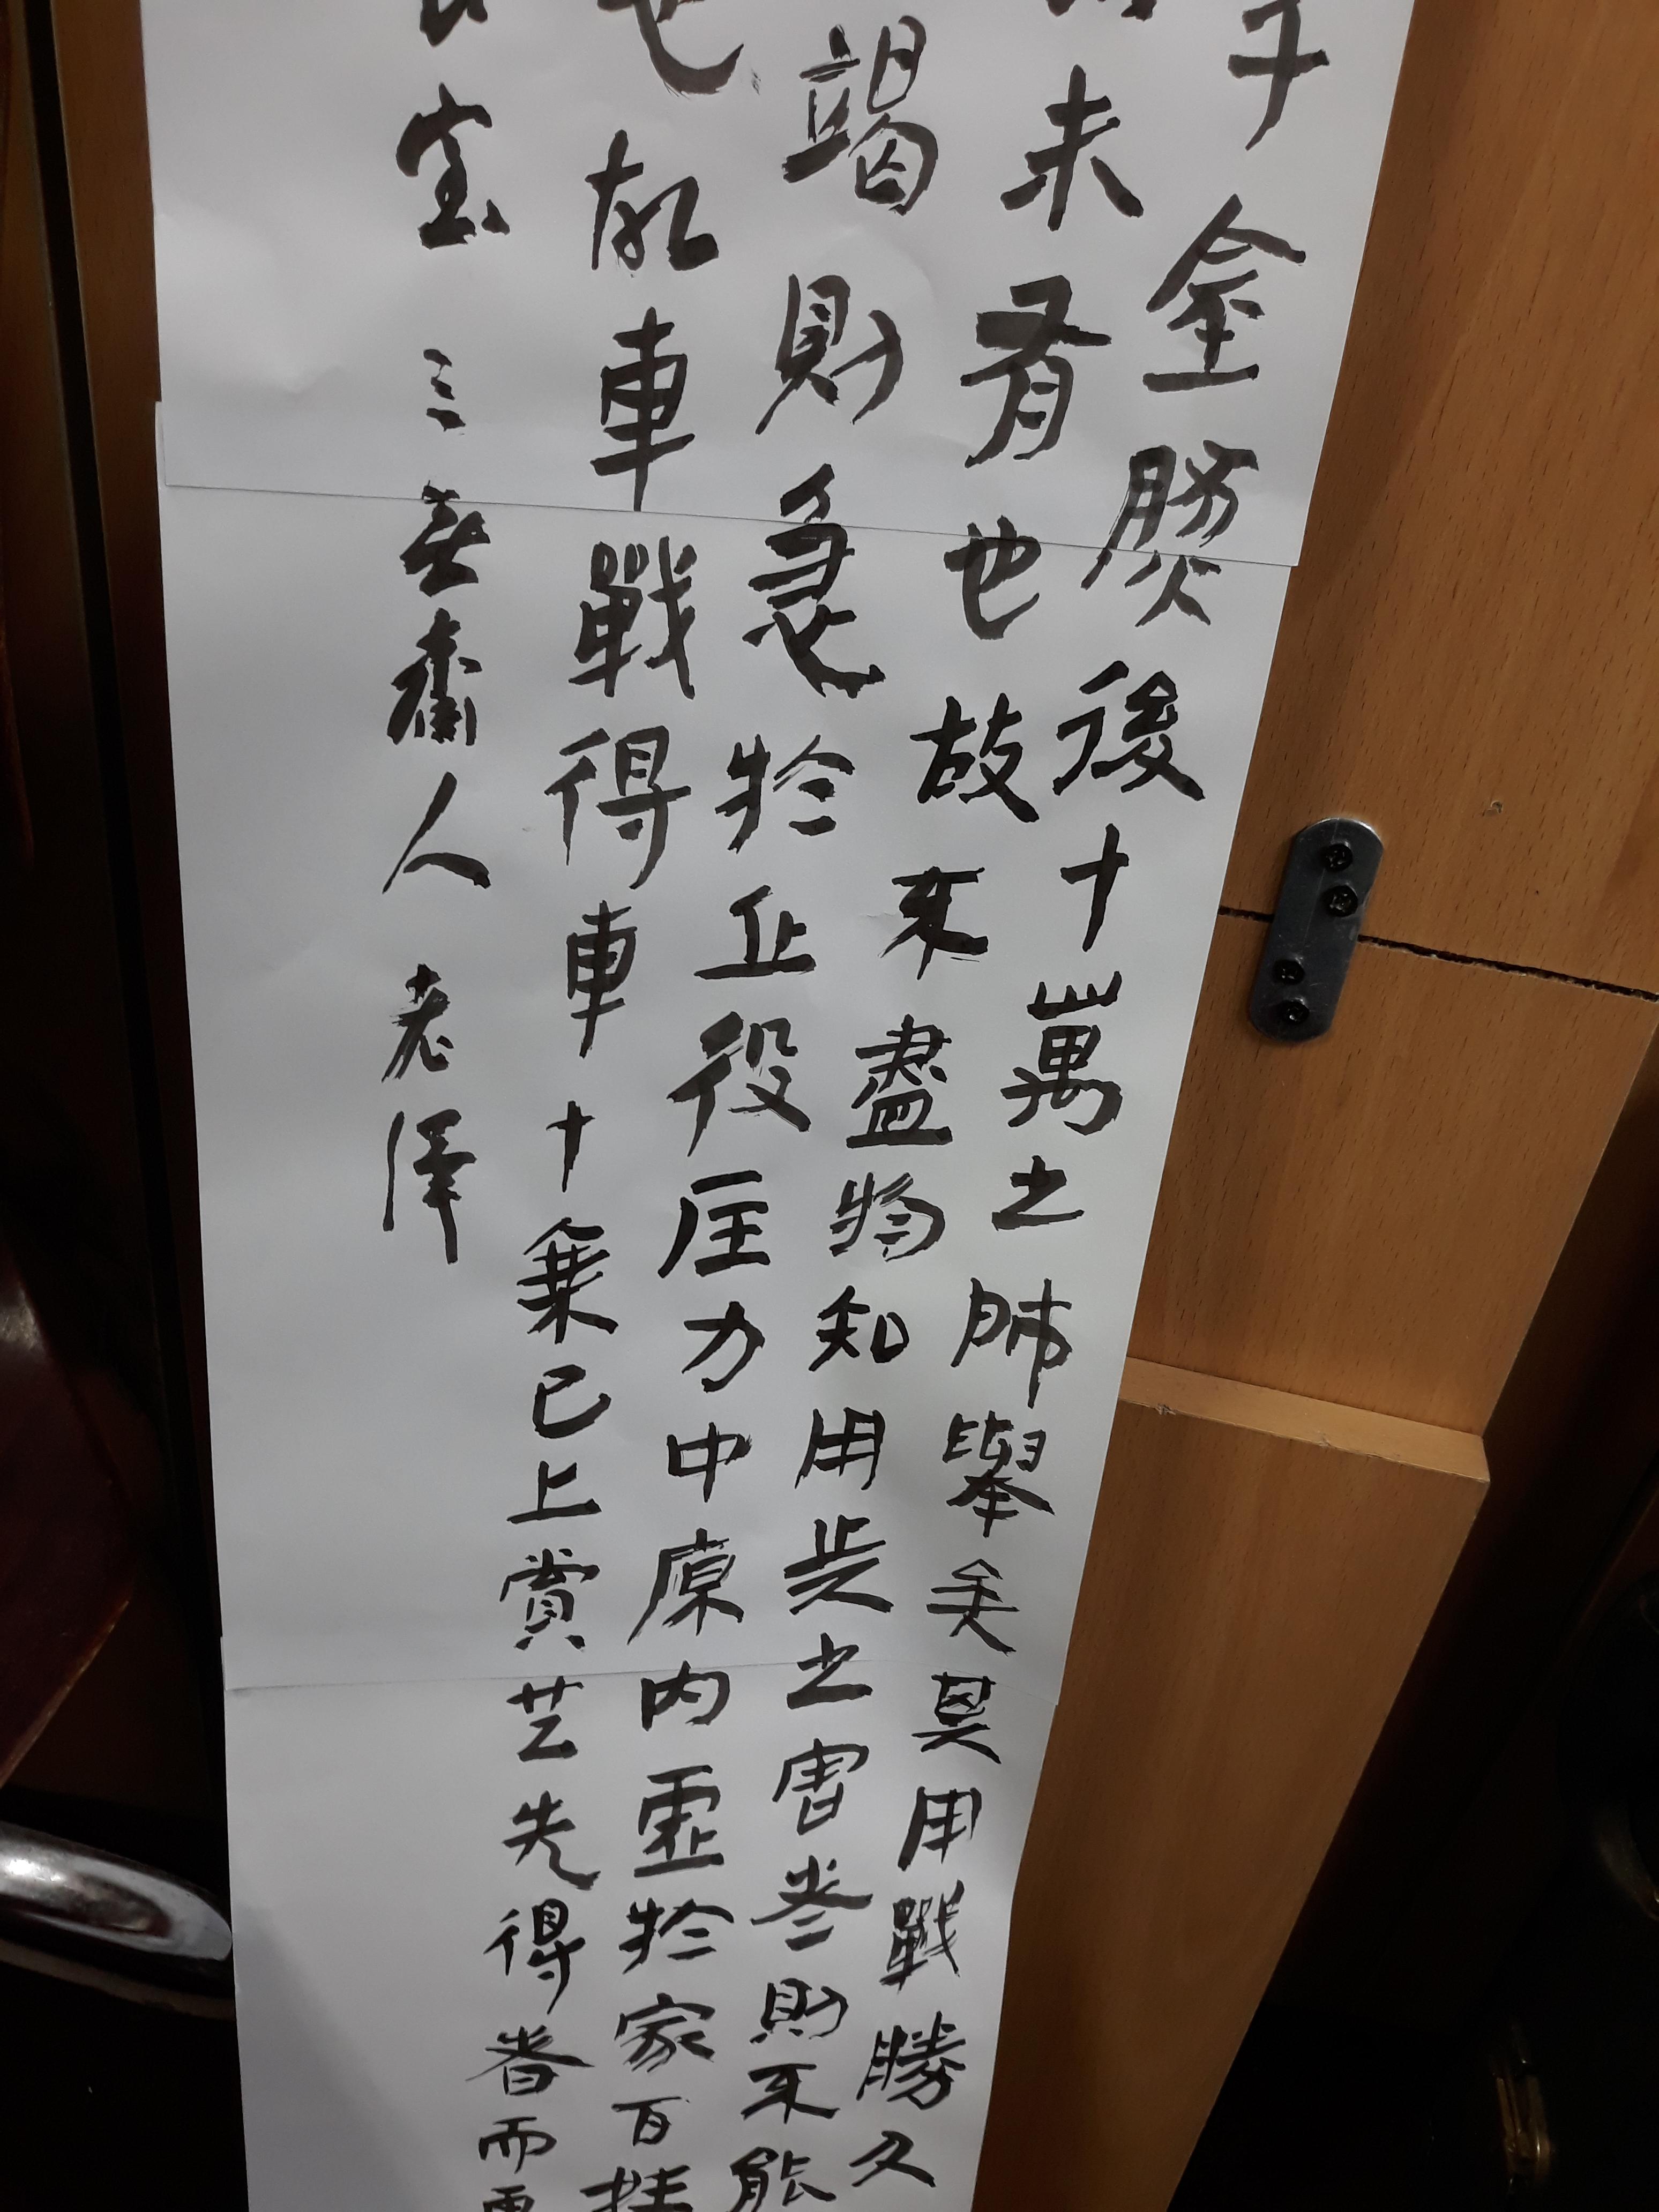 千金然後十萬之師舉矣其用戰勝久
未有也故不盡於知用兵之害者則不能
竭則急於丘役屈力中原內虛於家百姓
也故車戰得車十乘已上賞其先得者而
宝三齋人老澤